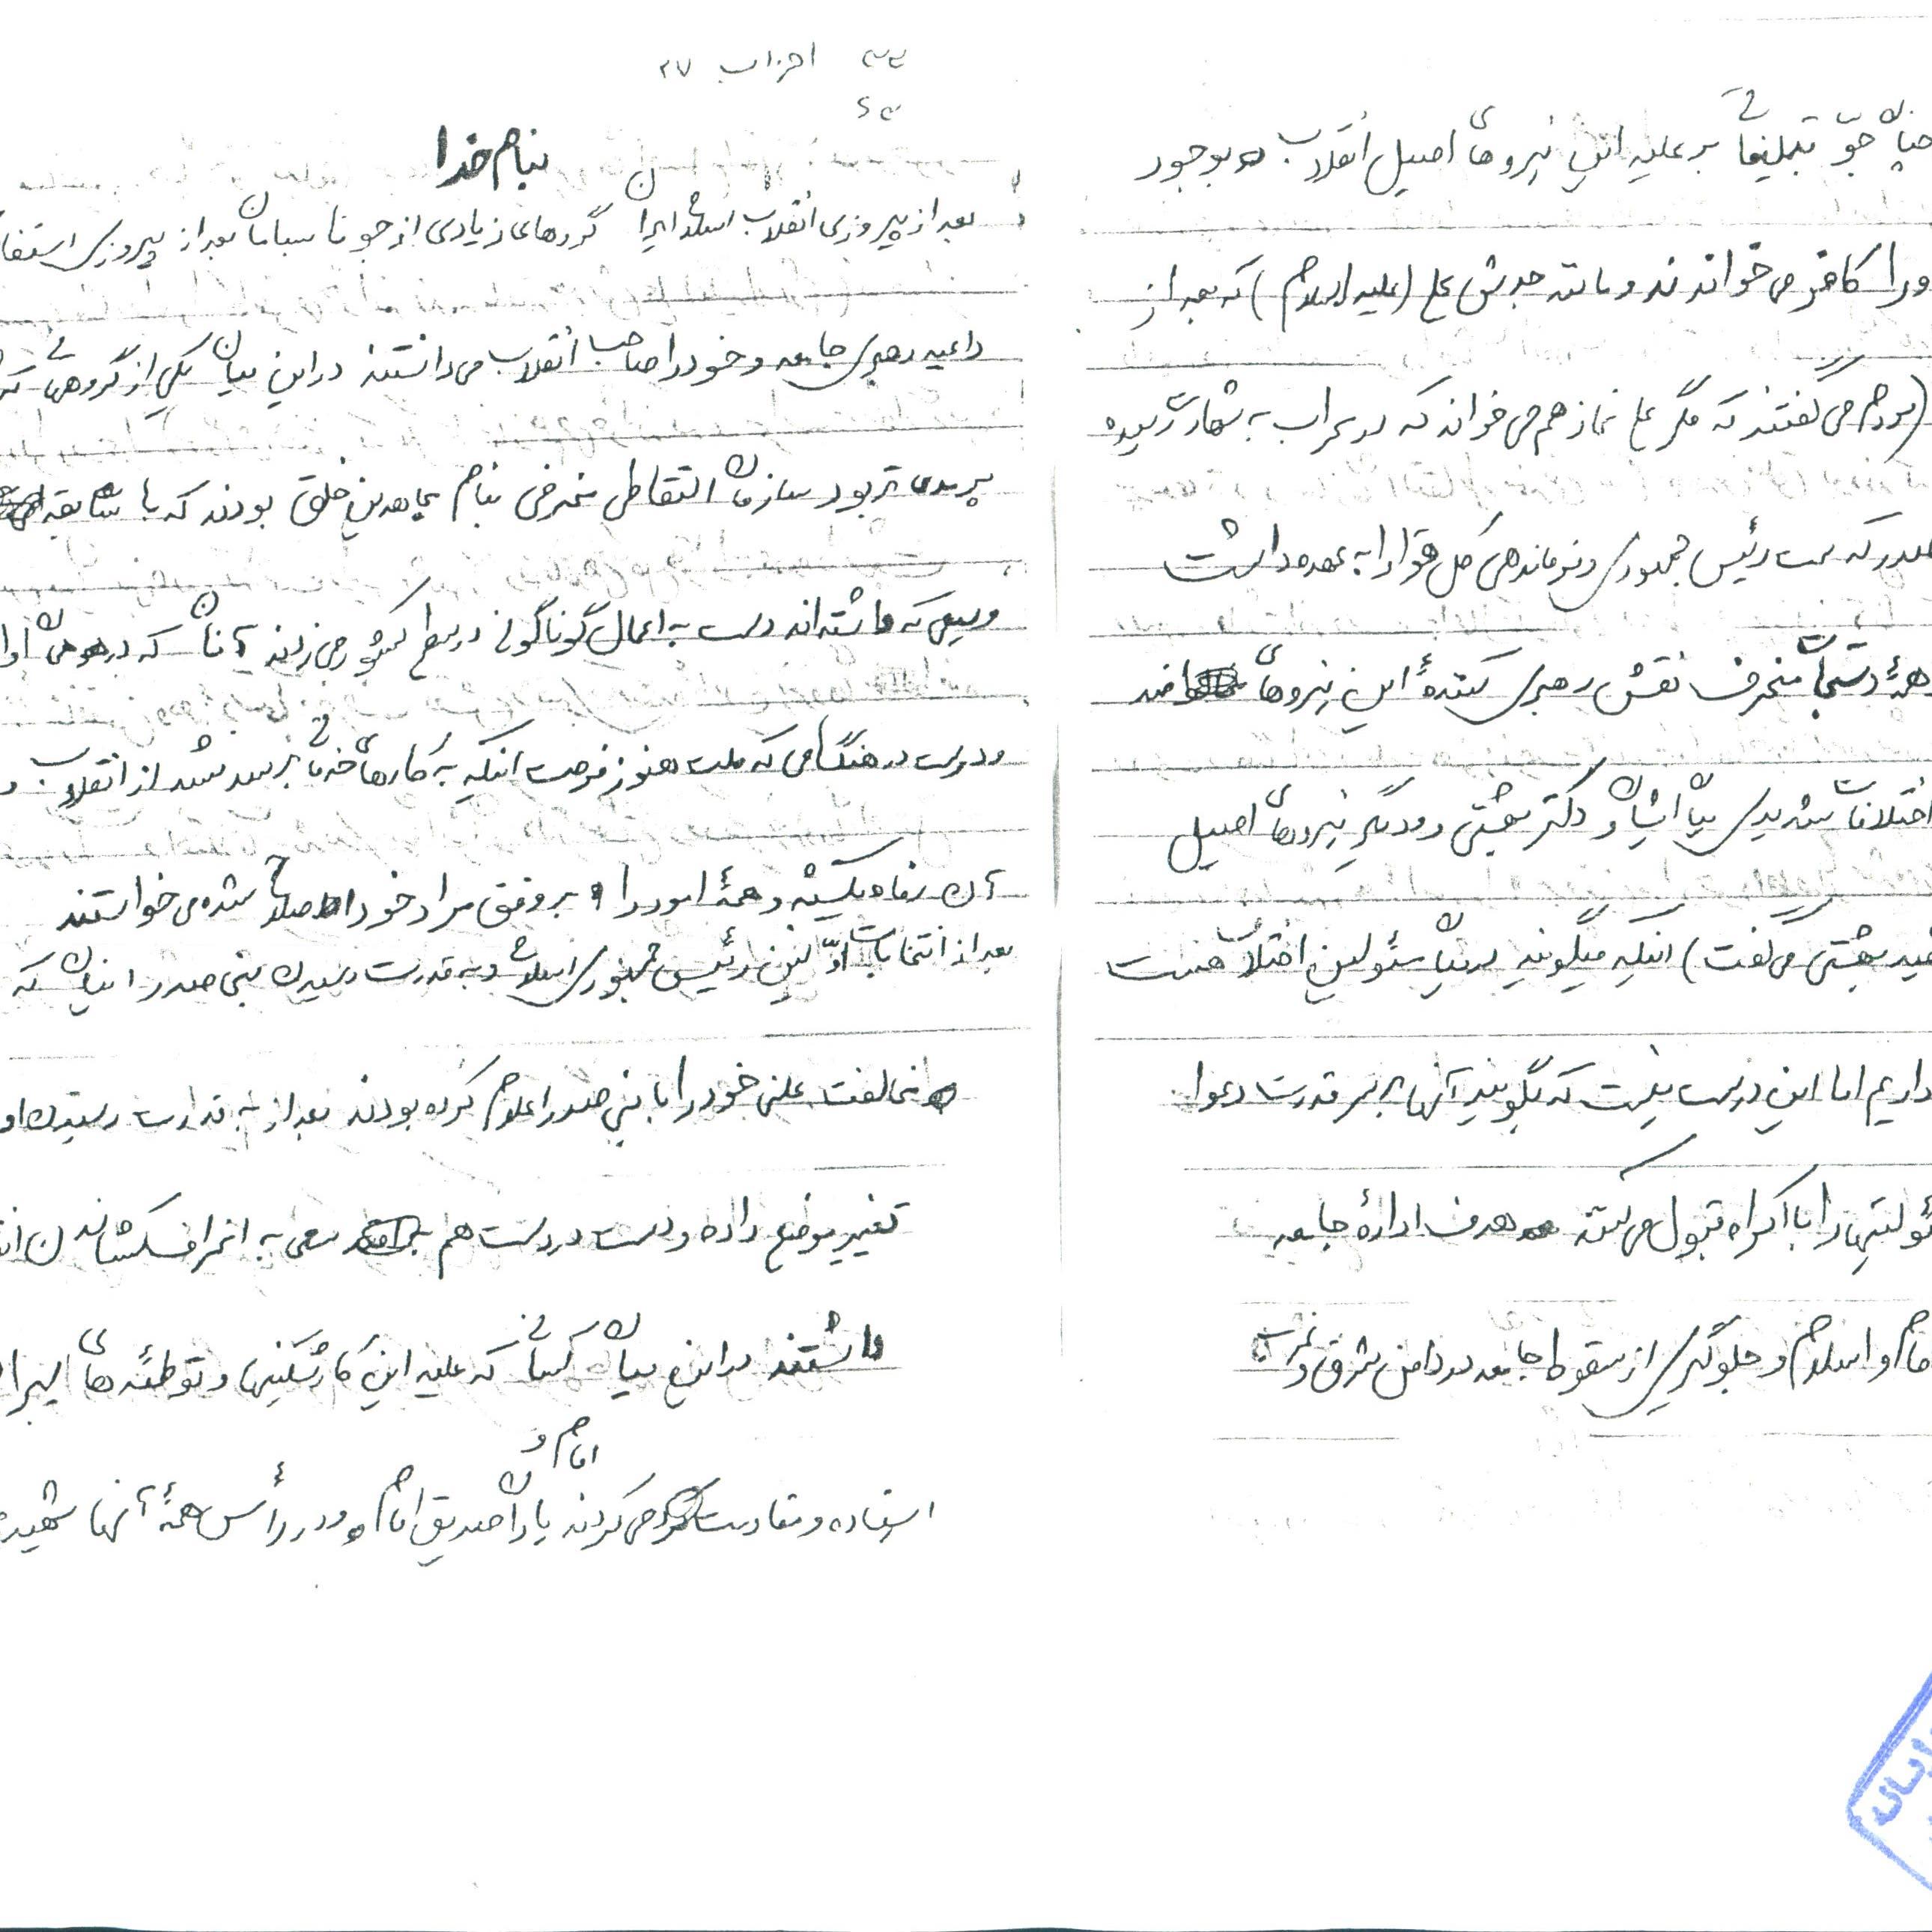 ۳۳ احزاب ۲۷
بنام خدا
بعد از پیروزی انقلاب اسلامی ایران گروههای زیادی از جو نا بسامان بعد از پیروزی
داعیه رهبری جامعه و خود را صاحب انقلاب می دانستند در این میان یکی از گروههائی که
تر بود سازمان التقاطی منحرفی بنام مجاهدین خلق بودند که با سابقه
وسیعی که داشته اند دست به اعمال گوناگونی در سطح کشور می زدند آنان که در
و درست در هنگامی که ملت هنوز فرصت اینکه به کارهای برسد نشد از انقلاب
آن بکشد و همهٔ امور را بر وفق مراد خود اصلاح شده می خواستند
بعد از انتخابات اوّلین رئیس جمهوری اسلامی و به قدرت رسیدن بنی صدر اینان که
مخالفت علنی خود را با بنی صدر اعلام کرده بودند بعد از به قدرت رسیدن او
تغییر موضع داده و دست در دست هم سعی به انحراف کشاندن
داشتند در این میان کسانی که علیه این کارشکنیها و توطئه های
امام و
ایستاده و مقاومت می کردند یاران صدیق امام و در رأس همهٔ آنها شهید
چنان جوّ تبلیغاتی بر علیه این نیروهای اصیل انقلاب بوجود
ورا کافر می خواندند و مانند جدش علی (علیه السلام) که بعد از
مردم می گفتند که مگر علی نماز هم می خواند که در محراب به شهادت رسیده
که سمت رئیس جمهوری و فرماندهی کل قوا را به عهده داشت
همهٔ دستجات منحرف نقش رهبری کنندهٔ این نیروهای ضد
اختلافات شدیدی میان ایشان و دکتر بهشتی و دیگر نیروهای اصیل
شهید بهشتی می گفت) اینکه میگویند در میان مسئولین اختلاف هست
داریم اما این درست نیست که بگویند آنها بر سر قدرت دعوا
را با اکراه قبول می کنند هدف ادارهٔ جامعه
امام و اسلام و جلوگیری از سقوط جامعه در دامن شرق و غرب